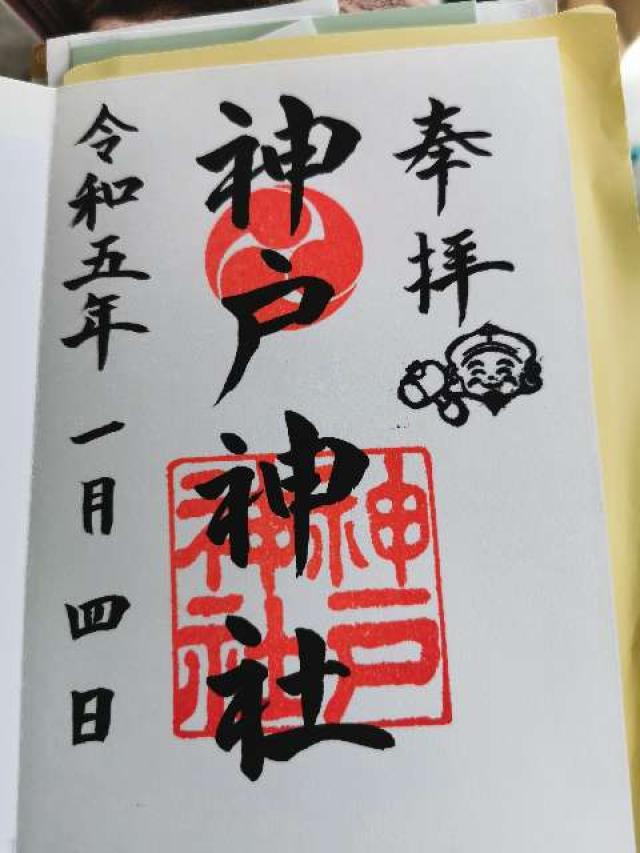 奉拝
神戸神社
神戸神社
令和五年一月四日